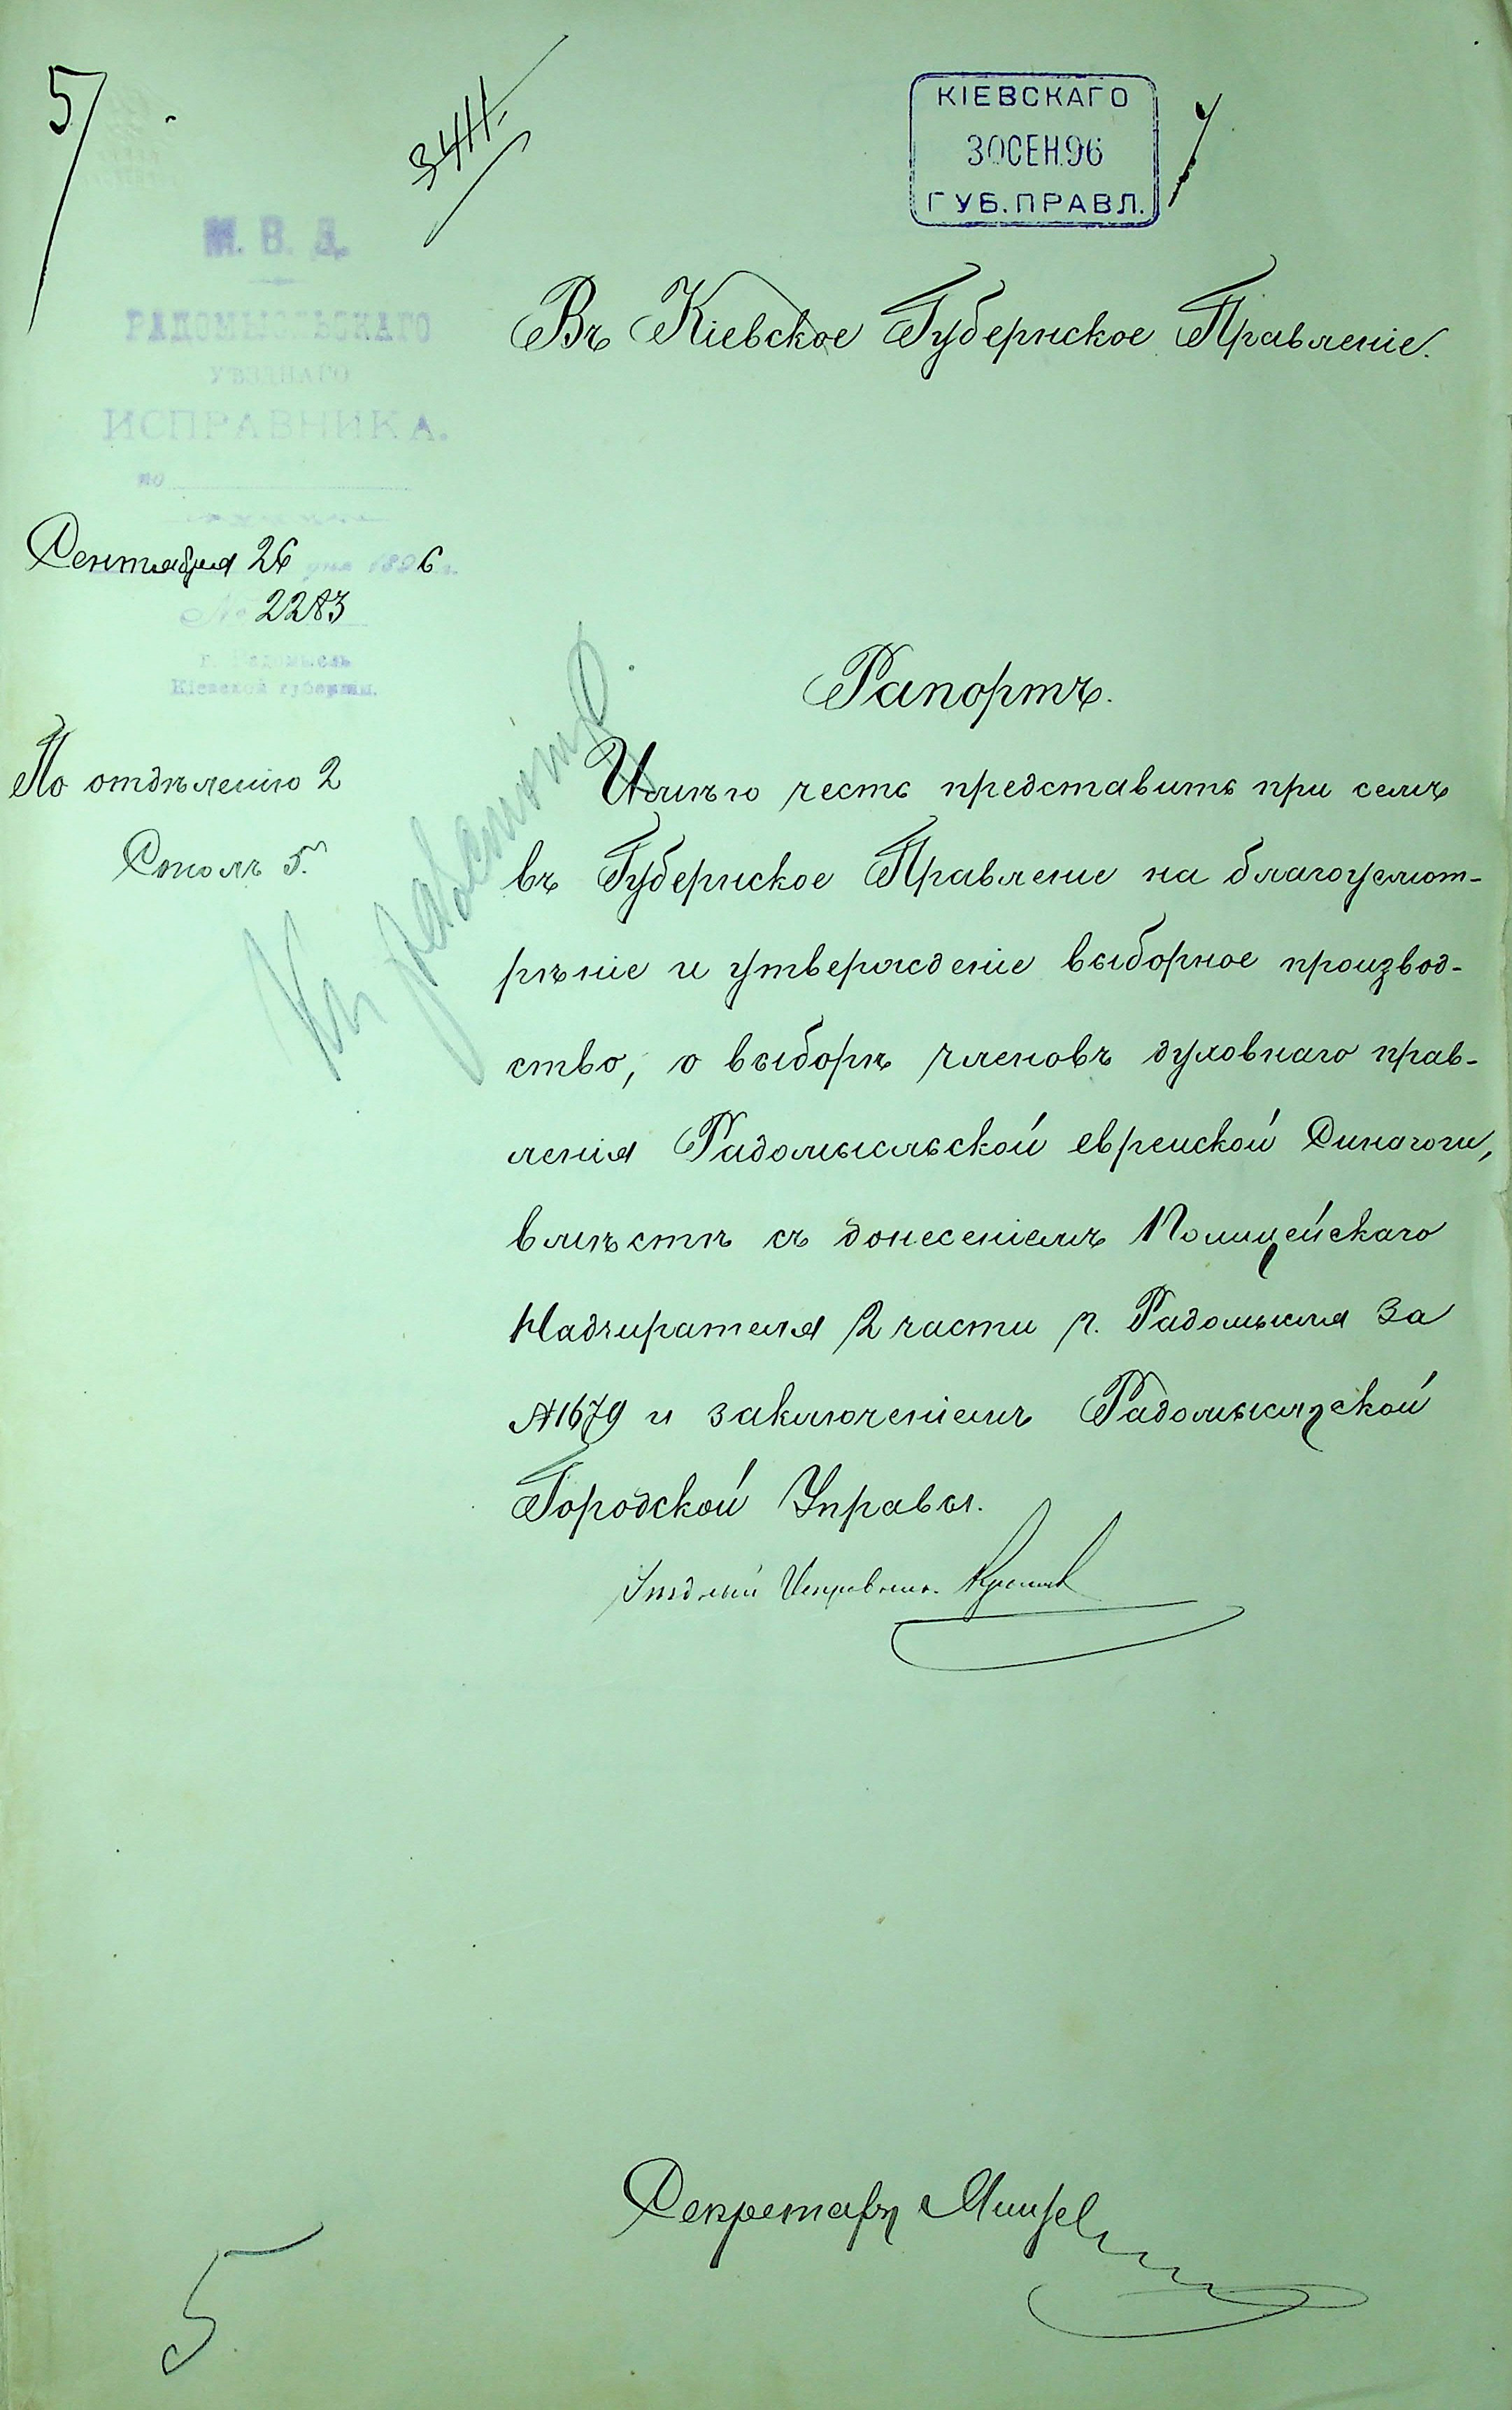 5
3411.
КІЕВСКАГО
30 СЕН.96
ГУБ.ПРАВЛ.
М. В. Д.
РАДОМЫСЛЬСКАГО
УѢЗДНАГО
ИСПРАВНИКА.
по
Сентября 26 дня 1896 г.
№ 2283
г. Радомысль
Кіевской губерніи.
По отдѣленію 2
Столъ 5.
Въ Кіевское Губернское Правленіе.
Рапортъ.
Имѣю честь представить при семъ
въ Губернское Правленіе на благоусмот-
рѣніе и утвержденіе выборное производ-
ство, о выборѣ членовъ духовнаго прав-
ленія Радомысльской еврейской Синагоги,
вмѣстѣ съ донесеніемъ Полицейскаго
Надзирателя 2 части г. Радомысля за
№1679 и заключеніемъ Радомысльской
Городской Управы.
Уѣздный Исправникъ
Секретарь
5